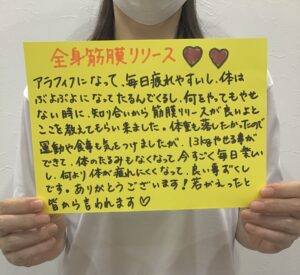 全身筋膜リリース ♥♥
アラフィフになって、毎日疲れやすいし、体は
ぶよぶよになってたるんでくるし、何をやってもやせ
ない時に、知り合いから筋膜リリースが良いよと
ここを教えてもらい来ました。体重も落したかったので
運動や食事も気をつけましたが、13kgやせる事が
できて、体のたるみもなくなって、今すごく毎日楽しい
し、何より体が疲れにくくなって、良い事ずくし
です。ありがとうございます！若がえったと
皆から言われます♡